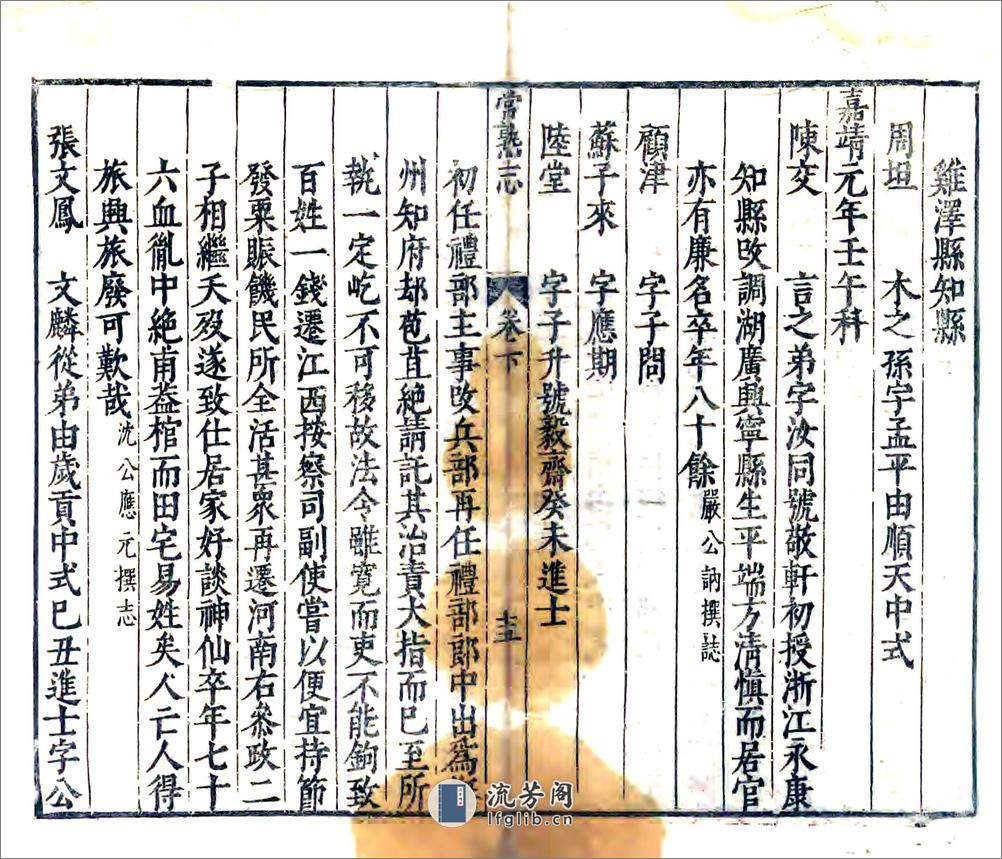 雞澤縣知縣
周坦 木之孫字孟平由順天中式
嘉靖元年壬午科
陳交 言之弟字汝同號敬軒初授浙江永康
知縣改調湖廣興寧縣生平端方清慎而居官
亦有廉名卒年八十餘嚴公訥撰誌
顧津 字子問
蘇子來 字應期
陸堂 字子升號毅齋癸未進士
常熟志 卷下 十五
初任禮部主事改兵部再任禮部郎中出爲
州知府却苞苴絶請託其治責大指而已至所
執一定屹不可移故法令雖寛而吏不能鉤致
百姓一錢遷江西按察司副使嘗以便宜持節
發粟賑饑民所全活甚衆再遷河南右叅政二
子相繼夭歿遂致仕居家好談神仙卒年七十
六血胤中絶甫葢棺而田宅易姓矣人亡人得
旅興旅廢可歎哉沈公應元撰志
張文鳳 文麟從弟由歲貢中式巳丑進士字公
流芳阁
lfglib.cn